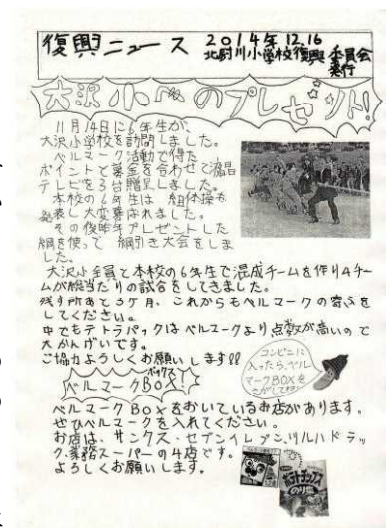 復興ニュース
2014年12.16
北尉川小学校復興委員会
発行
大沢小へのプレゼント!
11月14日に6年生が、
大沢小学校を訪問しました。
ベルマーク活動で得た
ポイントと募金を合わせて液晶
テレビを3台贈呈しました。
本校の6年生は、組体操を
発表し大変喜ばれました。
その後昨年プレゼントした
綱を使って綱引き大会をしま
した。
大沢小全員と本校の6年生で混成チームを作り4チー
ムが総当たりの試合をしてきました。
残す所あと3ヶ月、これからもベルマークの寄ふを
してください。
中でもテトラパックはベルマークより点数が高いので
大かんげいです。
ご協力よろしくお願いします!!
コンビニに
入ったら、ベル
マークBOXを
さがしてネ!
ベルマークBOX!
ボックス
ベルマークBOXをおいているお店があります。
ぜひベルマークを入れてください。
お店は、サンクス・セブンイレブン、ツルハドラッ
グ、業務スーパーの4店です。
よろしくお願いします。
ポテトチップス
のり塩